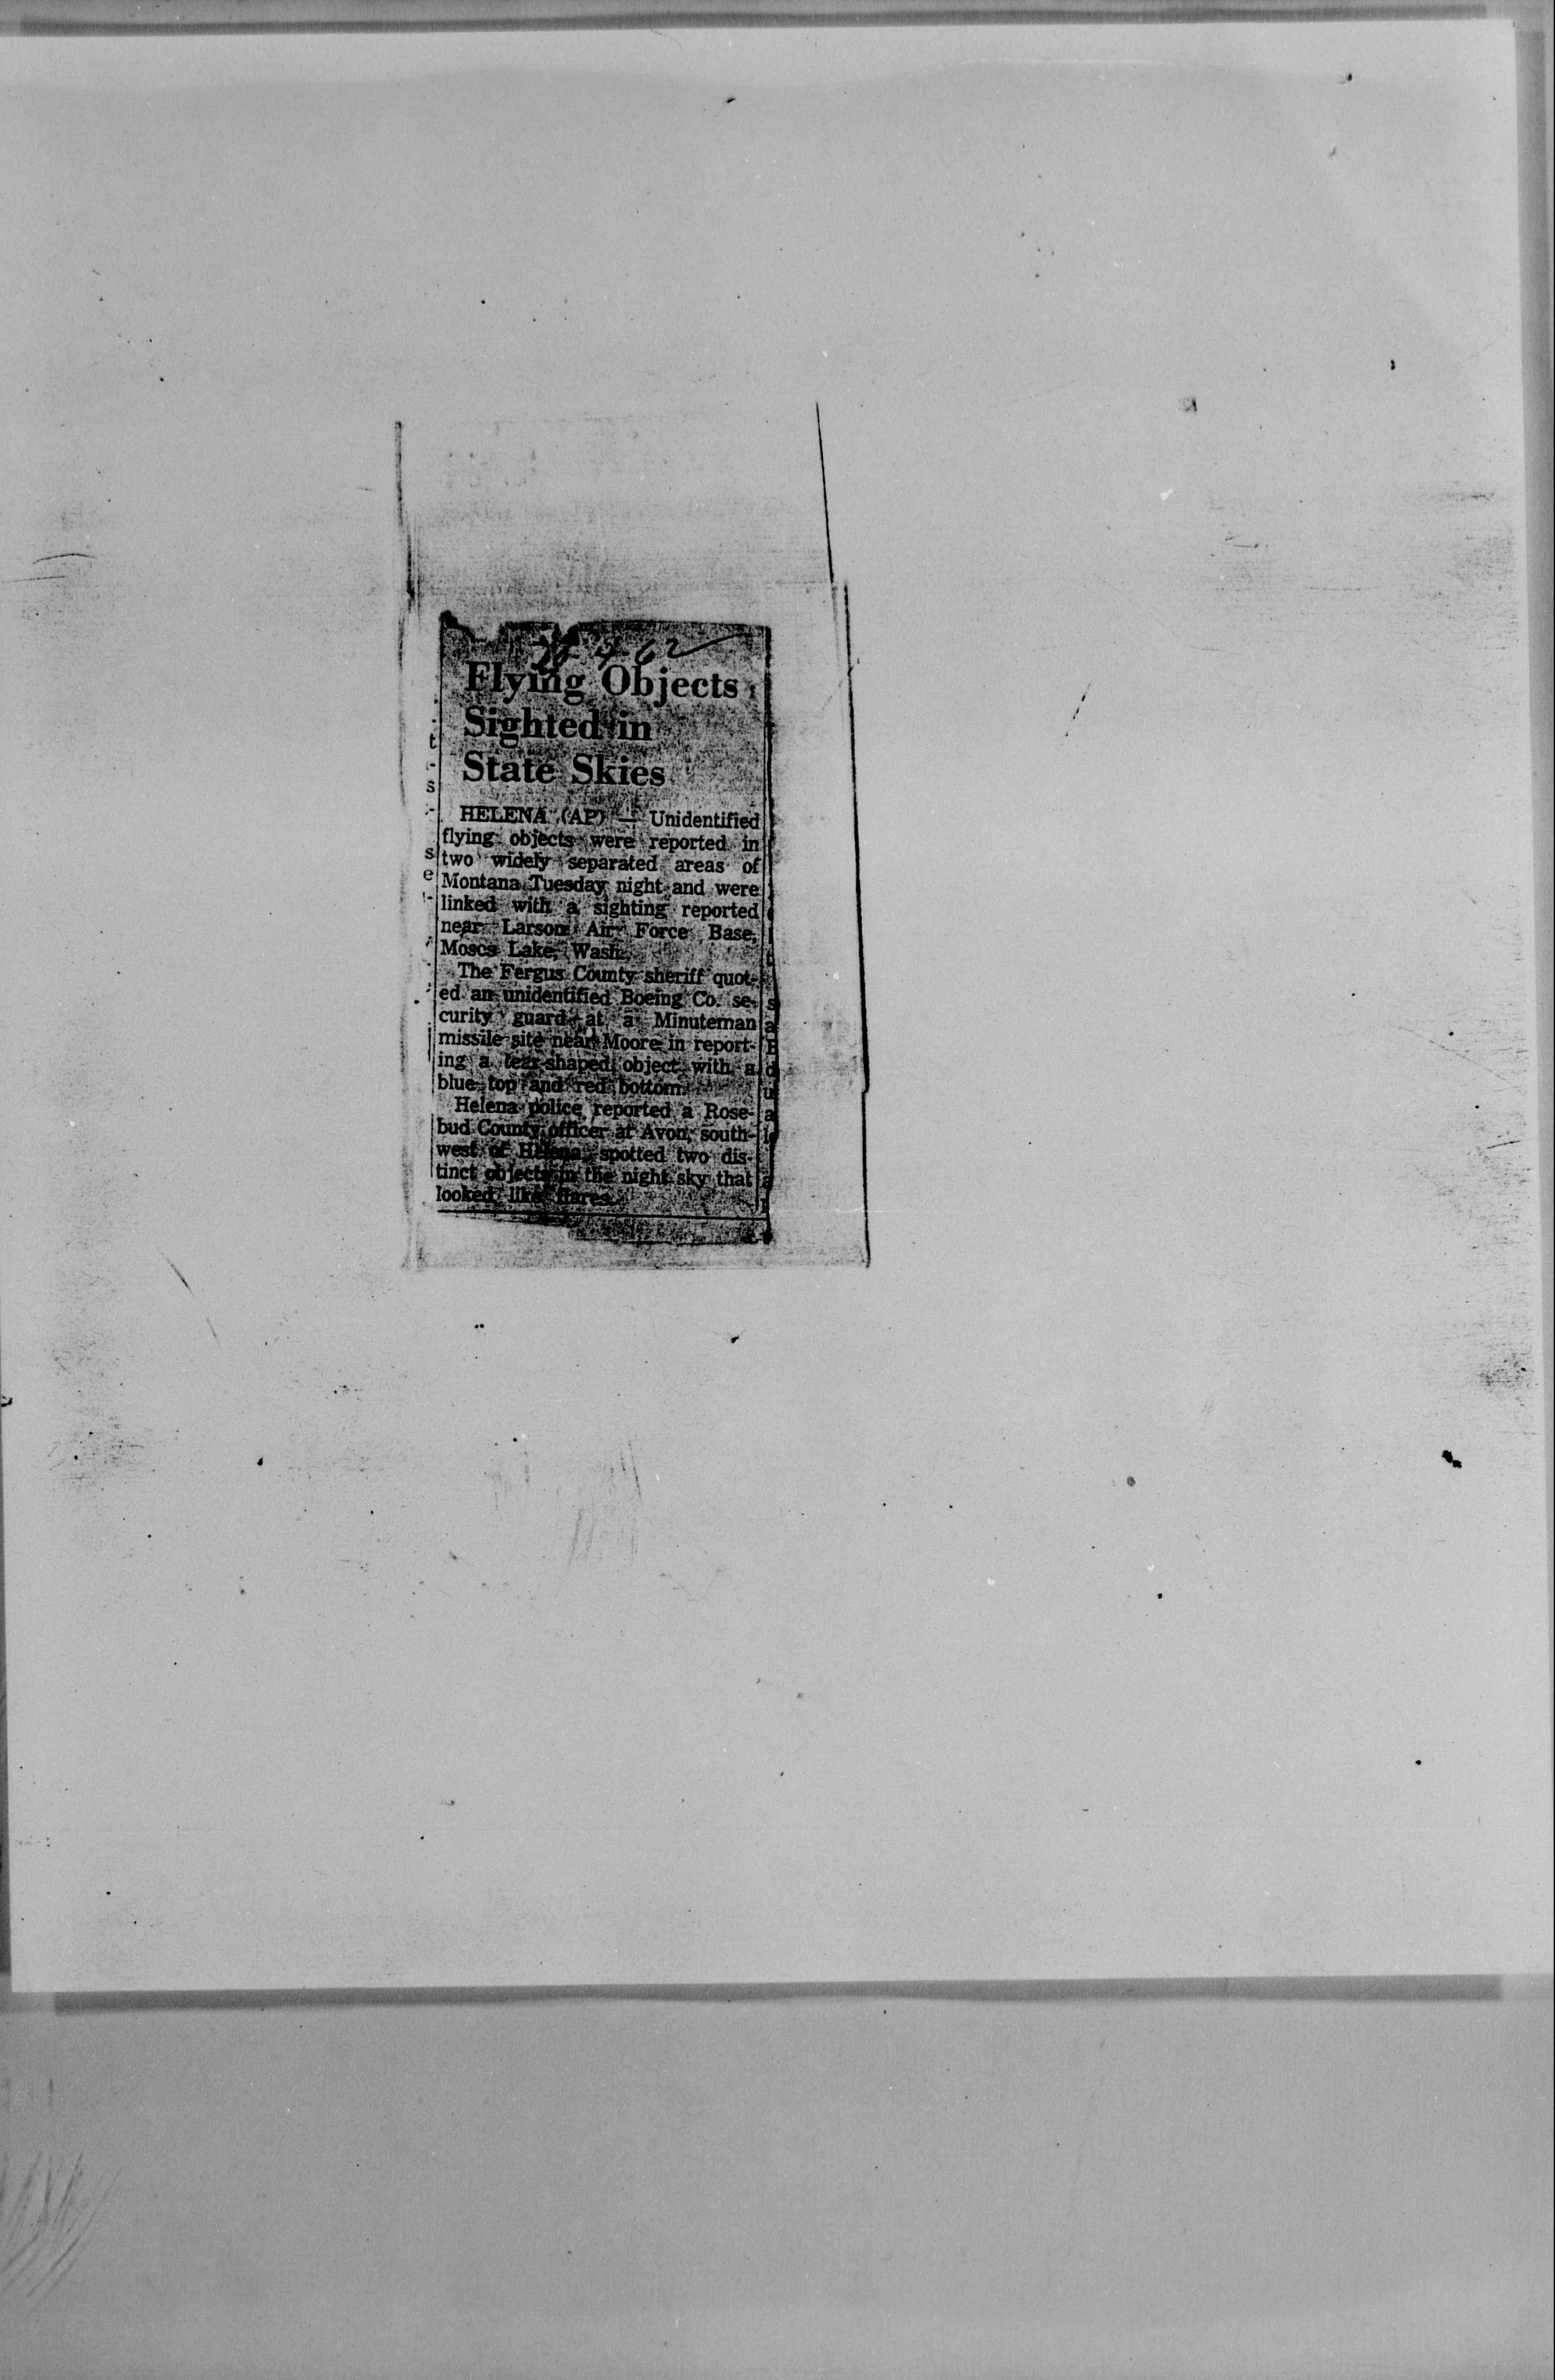 4-62
Flying Objects
Sighted in
State Skies
HELENA (AP) — Unidentified
flying objects were reported in
two widely separated areas of
Montana Tuesday night and were
linked with a sighting reported
near Larson Air Force Base,
Moses Lake, Wash.
The Fergus County sheriff quot-
ed an unidentified Boeing Co. se-
curity guard at a Minuteman
missile site near Moore in report-
ing a tear-shaped object with a
blue top and red bottom.
Helena police reported a Rose-
bud County officer at Avon, south-
west of Helena, spotted two dis-
tinct objects in the night sky that
looked like flares.